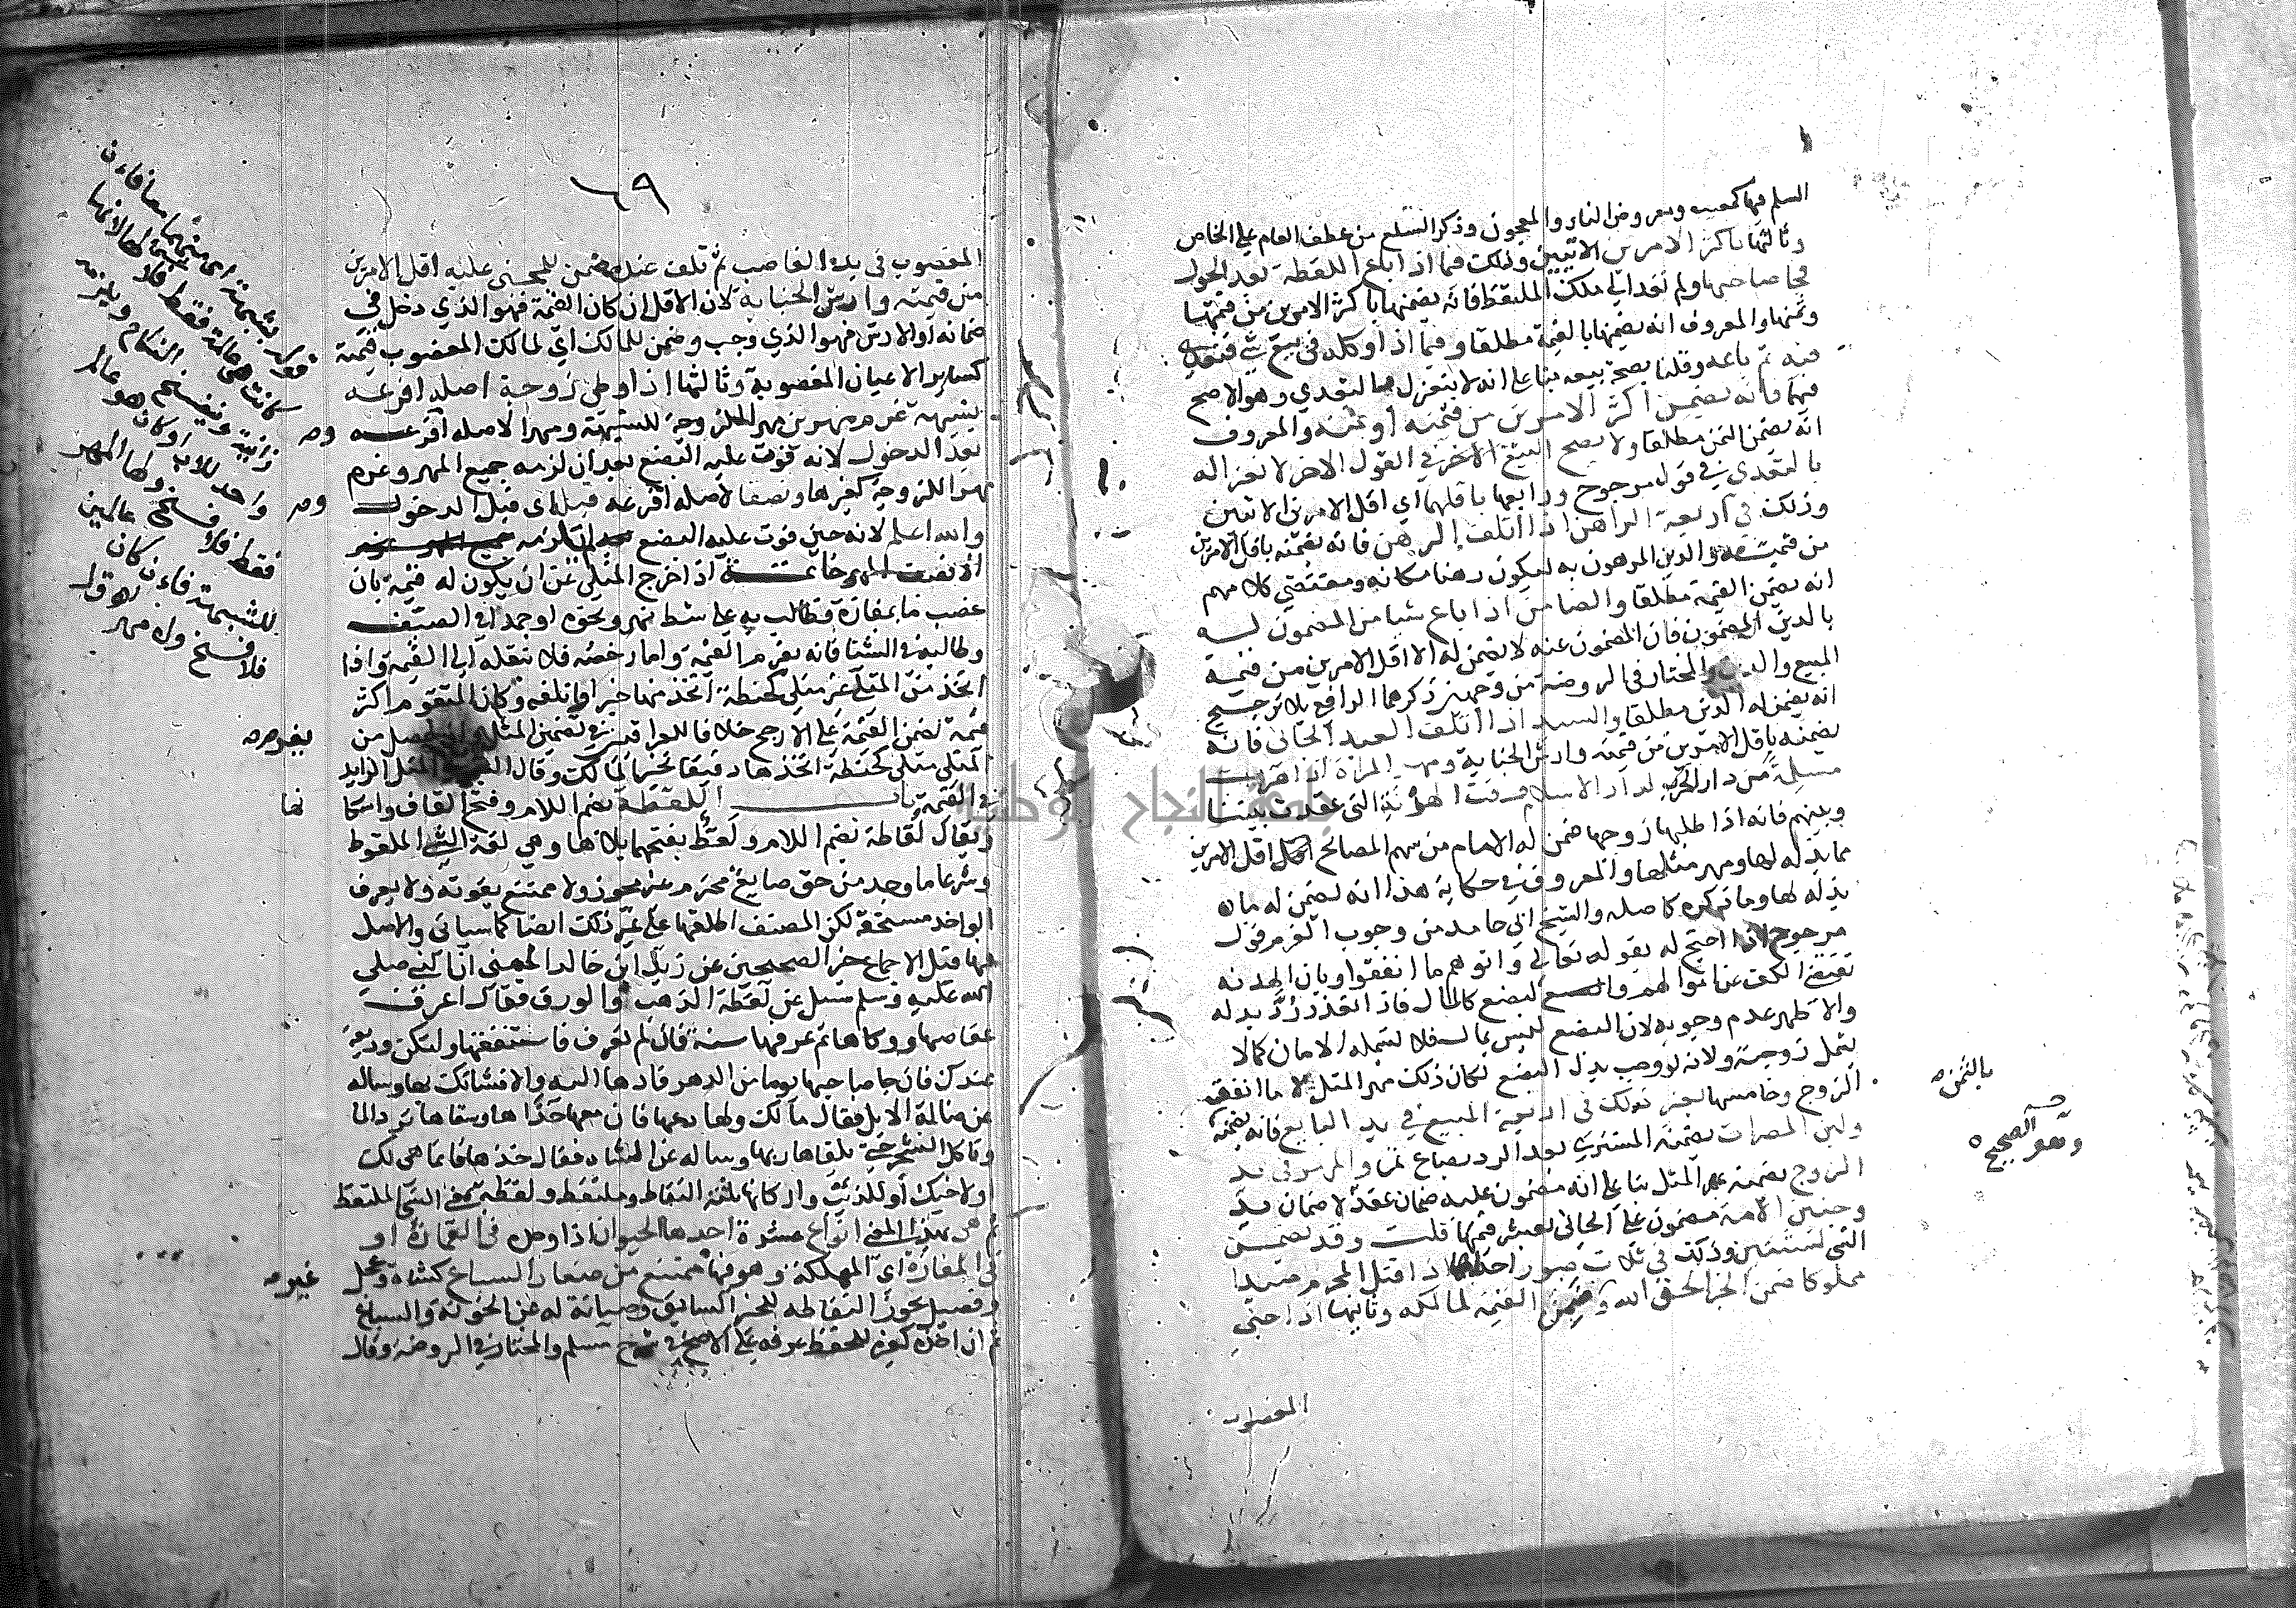 السلم فيها كمعيب ومعروض النار والمعجون وذكر السلم من عطف العام على الخاص
وثالثها باكثر الامرين الاثنين وذلك فيما اذا باع اللقطة بعد الحول
فجا صاحبها ولم نعد الى ملك الملتقط فانه يضمنها باكثر الامرين من قيمتها
وثمنها والمعروف انه يضمنها بالقيمة مطلقا وفيما اذا وكله في بيع شي فتعدى
فيه ثم باعه وقلنا بصحة بيعه بنا على انه لا ينعزل بالتعدي وهو الاصح
فيهما فانه يضمن اكثر الامرين من قيمته او ثمنه والمعروف
انه يضمن الثمن مطلقا ولا يصح البيع الاخر في القول الاخر لانعزاله
بالتعدي في قول مرجوح ورابعها باقلهما اي اقل الامرين الاثنين
وذلك في اربعة الراهن اذا اتلف الرهن فانه يضمنه باقل الامرين
من قيمته والدين المرهون به ليكون رهنا مكانه ومقتضى كلامهم
انه يضمن القيمة مطلقا والضامن اذا باع شيا من المضمون له
بالدين المضمون فان المضمون عنه لا يضمن له الا اقل الامرين من قيمة
المبيع والدين والمختار في الروضة من وجهين ذكرهما الرافعي بلا ترجيح
انه يضمن له الدين مطلقا والسيد اذا اتلف العبد الجاني فانه
يضمنه باقل الامرين من قيمته وارش الجناية ومهر المراة اذا هربت
مسلمة من دار الحرب لدار الاسلام وقت الهدنة التي عقدت بيننا
وبينهم فانه اذا طلبها زوجها ضمن له الامام من سهم المصالح اقل الامرين
مما بذله لها ومهر مثلها والمعروف في حكاية هذا انه يضمن له ما
بذله لها وما ذكره كاصله والشيخ ابي حامد من وجوب الغرم قول
مرجوح احتج له بقوله تعالى واتوهم ما انفقوا وبان الهدنة
تقتضي الكف عن اموالهم والبضع كالمال فاذا تعذر رد بدله
والاظهر عدم وجوبه لان البضع ليس بمال فلا يشمله الامان كما لا
يشمل زوجية ولانه لو وجب بدل البضع لكان ذلك مهر المثل لا ما انفق
الزوج وخامسها بغير ذلك في اربعة المبيع في يد البايع فانه يضمنه
بالثمن
ولبن المصرات يضمنه المشتري بعد الرد بصاع تمر والمهر في يد
وهو الصحيح
الزوج يضمنه بمهر المثل بنا على انه مضمون عليه ضمان عقد لا ضمان يد
وجنين الامة مضمون على الجاني بعشر قيمتها قلت وقد يضمن
الشي لشيئين وذلك في ثلاث صور احداها اذا قتل المحرم صيدا
مملوكا ضمن الجزا لحق الله وضمن القيمة لمالكه وثانيها اذا جنى
المغصوب
٦٩
المغصوب في يد الغاصب ثم تلف عنده ضمن للمجني عليه اقل الامرين
من قيمته وارش الجناية لان الاقل ان كان القيمة فهو الذي دخل في
ضمانه او الارش فهو الذي وجب وضمن للمالك اي لمالك المغصوب قيمته
كساير الاعيان المغصوبة وثالثها اذا وطي زوجة اصله او فرعه
بشبهة غرم مهرين مهر للزوجة للشبهة ومهرا لاصله او فرعه
بعد الدخول لانه فوت عليه البضع بعد ان لزمه جميع المهر وغرم
مهرا للزوجة كغيرها ونصفا لاصله او فرعه قبله اي قبل الدخول
والله اعلم لانه حين فوت عليه البضع لم يلزمه
الا نصف المهر خاتمة اذا خرج المثلي عن ان يكون له قيمة بان
غصب ما بمفازة وطالب به على شط نهر ونحوه او جمدا في الصيف
وطالبه في الشتا فانه يغرم القيمة واما رخصه فلا ينقله الى القيمة واذا
اتخذ من المثلي غير مثلي كحنطة اتخذ منها خبزا واتلفه وكان المتقوم اكثر
قيمة تضمن القيمة على الارجح خلافا للعراقيين في تضمين المثل من
المثلي مثلي كحنطة اتخذها دقيقا تخير المالك وقال المثل الزايد
في القيمة باب اللقطة بضم اللام وفتح القاف واسكا
نها
ويقال لقاطة بضم اللام ولقط بفتحهما بلا ها وهي لغة الشي الملقوط
وشرعا ما وجد من حق ضايع محترم غير محوز ولا ممتنع بقوته ولا يعرف
الواجد مستحقه لكن المصنف اطلقها على غير ذلك ايضا كما سياتي والاصل
فيها قبل الاجماع خبر الصحيحين عن زيد ابن خالد الجهني ان النبي صلى
الله عليه وسلم سيل عن لقطة الذهب والورق فقال اعرف
عفاصها ووكاها ثم عرفها سنة فان لم تعرف فاستنفقها ولتكن وديعة
عندك فان جا صاحبها يوما من الدهر فادها اليه والا فشانك بها وساله
عن ضالة الابل فقال مالك ولها دعها فان معها حذاها وسقاها ترد الما
وتاكل الشجر حتى يلقاها ربها وساله عن الشاه فقال خذها فانما هي لك
او لاخيك او للذيب واركانها ثلثة التقاط وملتقط ولقطة بمعنى الشي الملتقط
ثم هي بهذا المعنى انواع عشرة احدها الحيوان اذا وجد في العمارة او
في المفازة اي المهلكة وهو فيها ممتنع من صغار السباع كشاة وعجل
غير
وفصيل يجوز التقاطه للخبر السابق وصيانة له عن الخونة والسباع
ثم ان اخذه كغيره للحفظ عرفه على الاصح في شرح مسلم والمختار في الروضة وقال